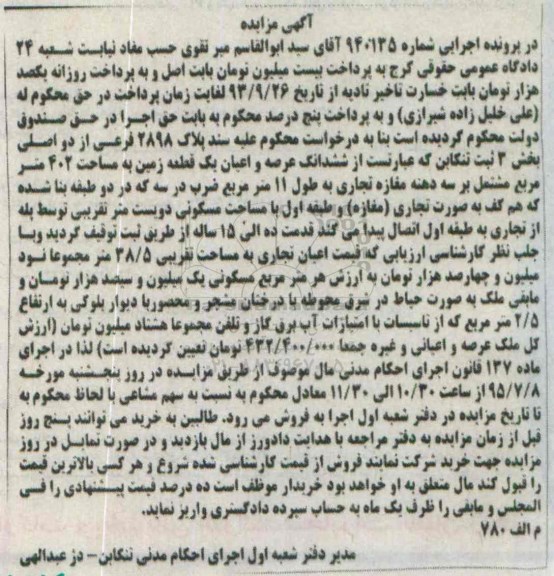 آگهی مزایده
در پرونده اجرایی شماره ۹۴۰۱۳۵ آقای سید ابوالقاسم میر تقوی حسب مفاد نیابت شعبه ۲۴
دادگاه عمومی حقوقی کرج به پرداخت بیست میلیون تومان بابت اصل و به پرداخت روزانه یکصد
هزار تومان بابت خسارت تاخیر تادیه از تاریخ ۹۳/۹/۲۶ لغایت زمان پرداخت در حق محکوم له
(علی خلیل زاده شیرازی) و به پرداخت پنج درصد محکوم به بابت حق اجرا در حق صندوق
دولت محکوم گردیده است بنا به درخواست محکوم علیه سند پلاک ۲۸۹۸ فرعی از دو اصلی
بخش ۳ ثبت تنکابن که عبارتست از ششدانگ عرصه و اعیان یک قطعه زمین به مساحت ۴۰۲ متر
مربع مشتمل بر سه دهنه مغازه تجاری به طول ۱۱ متر مربع ضرب در سه که در دو طبقه بنا شده
که هم کف به صورت تجاری (مغازه) و طبقه اول با مساحت مسکونی دویست متر تقریبی توسط پله
از تجاری به طبقه اول اتصال پیدا می کند قدمت ده الی ۱۵ ساله از طریق ثبت توقیف گردید وبا
جلب نظر کارشناسی ارزیابی که قیمت اعیان تجاری به مساحت تقریبی ۳۸/۵ متر مجموعا نود
میلیون و چهارصد هزار تومان به ارزش هر متر مربع مسکونی یک میلیون و سیصد هزار تومان و
مابقی ملک به صورت حیاط در شرق محوطه با درختان مشجر و محصور با دیوار بلوکی به ارتفاع
۲/۵ متر مربع که از تاسیسات با امتیازات آب برق گاز و تلفن مجموعا هشتاد میلیون تومان (ارزش
کل ملک عرصه و اعیانی و غیره جمعا ۴۳۲/۴۰۰/۰۰۰ تومان تعیین گردیده است) لذا در اجرای
ماده ۱۳۷ قانون اجرای احکام مدنی مال موصوف از طریق مزایده در روز پنجشنبه مورخه
۹۵/۷/۸ از ساعت ۱۰/۳۰ الی ۱۱/۳۰ معادل محکوم به نسبت به سهم مشاعی با لحاظ محکوم به
تا تاریخ مزایده در دفتر شعبه اول اجرا به فروش می رود. طالبین به خرید می توانند پنج روز
قبل از زمان مزایده به دفتر مراجعه با هدایت دادورز از مال بازدید و در صورت تمایل در روز
مزایده جهت خرید شرکت نمایند فروش از قیمت کارشناسی شده شروع و هر کسی بالاترین قیمت
را قبول کند مال متعلق به او خواهد بود خریدار موظف است ده درصد قیمت پیشنهادی را فی
المجلس و مابقی را ظرف یک ماه به حساب سپرده دادگستری واریز نماید.
م الف ۷۸۰
مدیر دفتر شعبه اول اجرای احکام مدنی تنکابن- دژ عبدالهی